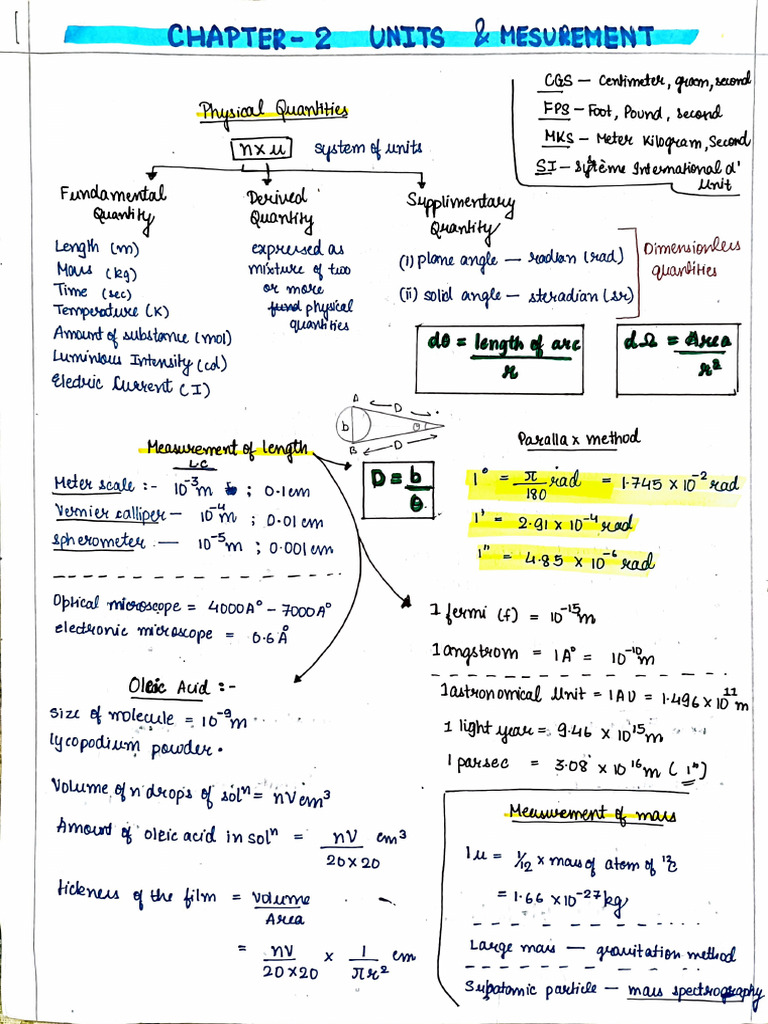 CHAPTER-2 UNITS & MESUREMENT
CGS — Centimeter, gram, second
FPS — Foot, Pound, second
MKS — Meter Kilogram, Second
SI — Système International d'
Unit
Physical Quantities
n×u system of units
Fundamental
Quantity
Length (m)
Mass (kg)
Time (sec)
Temperature (K)
Amount of substance (mol)
Luminous Intensity (cd)
Eledric Current (I)
Derived
Quantity
expressed as
mixture of two
or more
fund physical
quantities
Supplimentary
Quantity
(i) plane angle — radian (rad)
(ii) solid angle — steradian (sr)
Dimensionless
quantities
dθ = length of arc / r
dΩ = Area / r²
Measurement of length
LC
Meter scale :- 10⁻³m ; 0.1cm
Vernier calliper — 10⁻⁴m ; 0.01cm
spherometer — 10⁻⁵m ; 0.001cm
Optical microscope = 4000A° – 7000A°
electronic microscope = 0.6Å
A
D
b
θ
D
B
D = b / θ
Parallax method
1° = π/180 rad = 1.745 × 10⁻² rad
1' = 2.91 × 10⁻⁴ rad
1'' = 4.85 × 10⁻⁶ rad
1 fermi (f) = 10⁻¹⁵m
1 angstrom = 1A° = 10⁻¹⁰m
1 astronomical Unit = 1AU = 1.496 × 10¹¹ m
1 light year = 9.46 × 10¹⁵m
1 parsec = 3.08 × 10¹⁶m (1'')
Oleic Acid :-
Size of molecule = 10⁻⁹m
lycopodium powder.
Volume of n drops of solⁿ = nVcm³
Amount of oleic acid in solⁿ = nV / 20×20 cm³
tickness of the film = Volume / Area
= nV / 20×20 × 1 / πr² cm
Measurement of mass
1u = 1/12 × mass of atom of ¹²C
= 1.66 × 10⁻²⁷kg
Large mass — gravitation method
Subatomic particle — mass spectrography